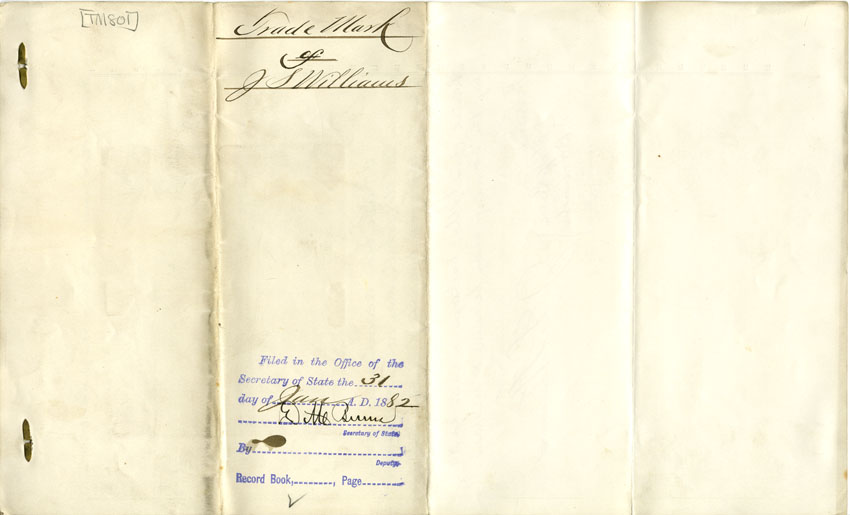 [TM801]
Trade Mark
of
J S Williams
Filed in the Office of the
Secretary of State the 31
day of Jan A. D. 1882
D M Burns
Secretary of State
By
Deputy
Record Book, , Page